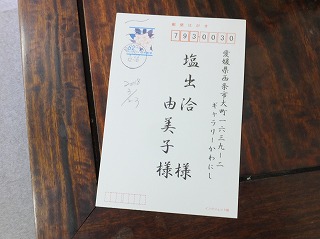 郵便はがき
7930030
愛媛県西条市大町一六三九-二
ギャラリーかわにし
塩出洽様
由美子様
2008